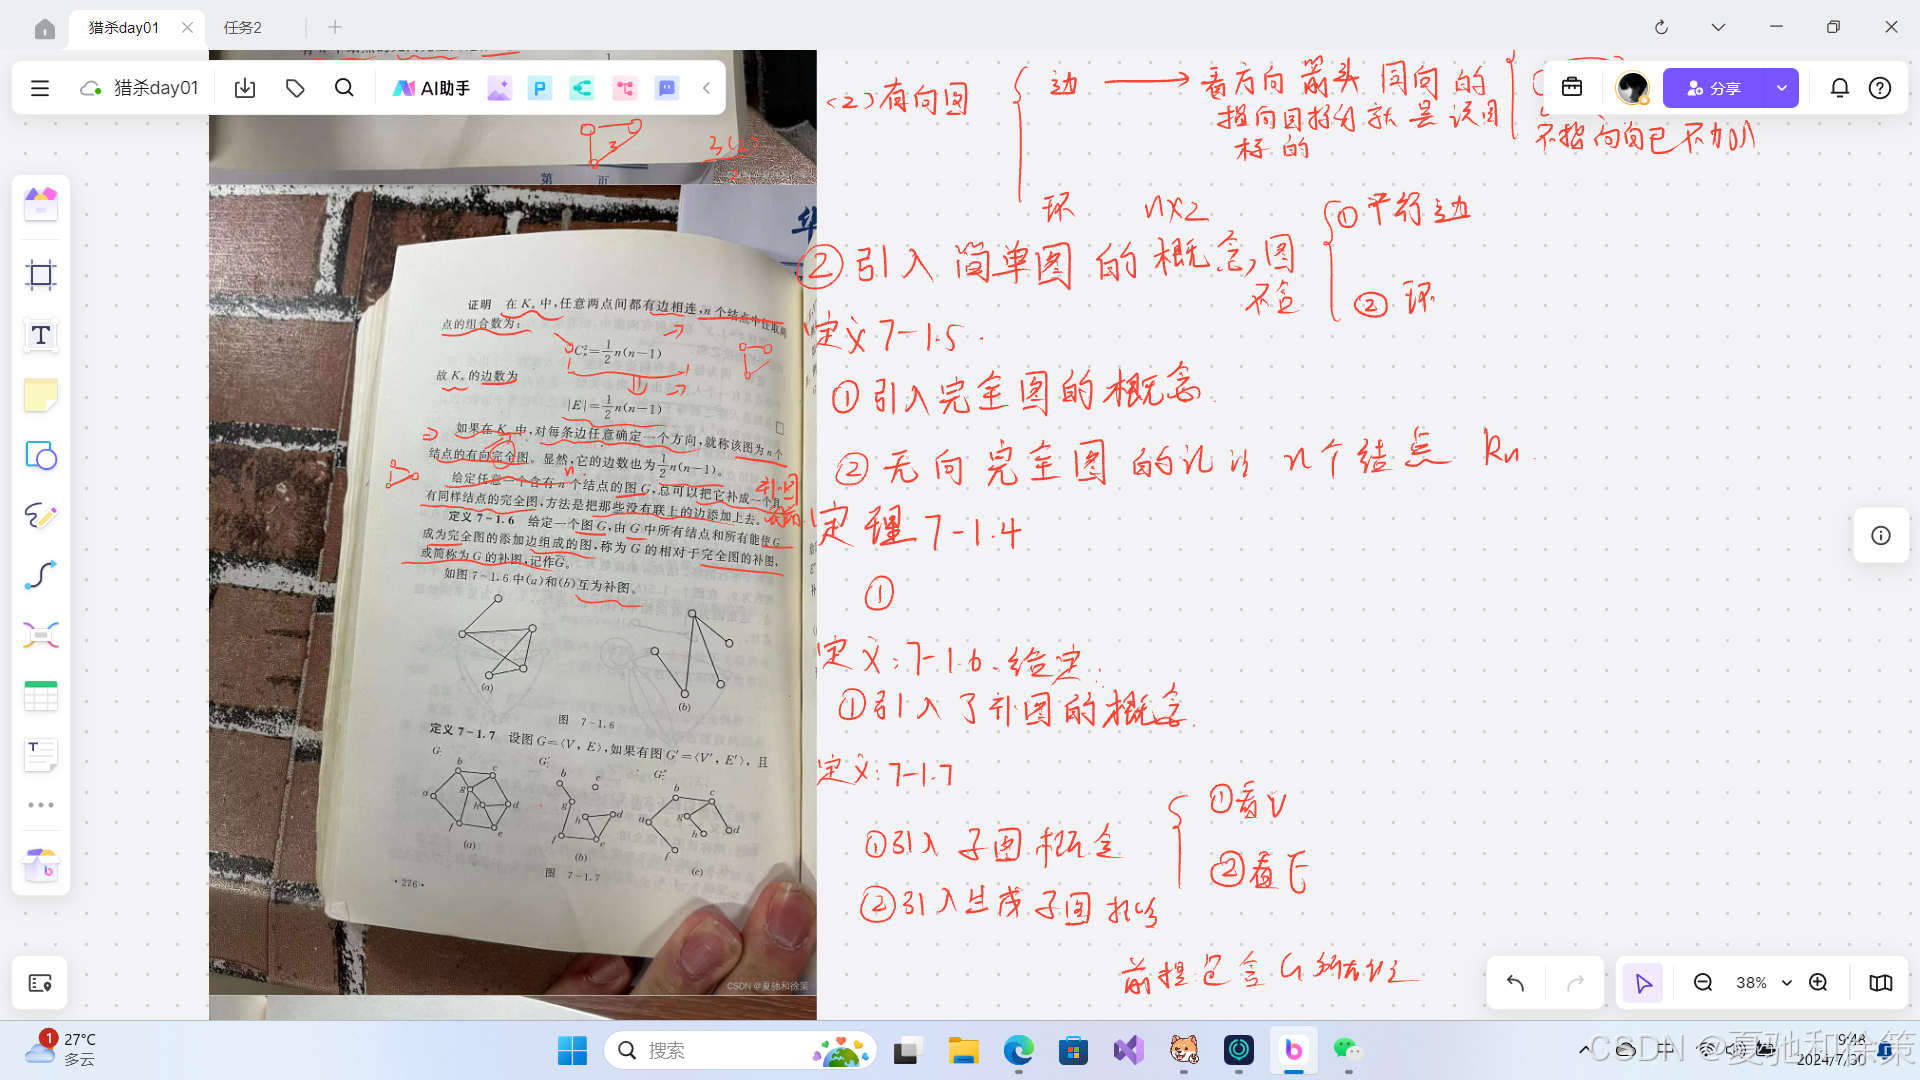 猎杀day01
任务2
猎杀day01
AI助手
分享
3
第 页
(2)有向图
边 → 看方向 箭头 同向的
不指向自己不加
环 n×2
①平行边
②引入简单图的概念,图
不含
②环
定义7-1.5.
①引入完全图的概念.
②无向完全图的 n个结点 Kn.
定理7-1.4
①
定义:7-1.6.给定.
①引入了补图的概念.
定义:7-1.7
①引入子图概念
①看V
②看E
②引入生成子图
前提包含G所有
证明 在 Kₙ 中,任意两点间都有边相连,n 个结点中任取两
点的组合数为:
C²ₙ=½n(n−1)
故 Kₙ 的边数为
|E|=½n(n−1) □
如果在 Kₙ 中,对每条边任意确定一个方向,就称该图为 n 个
结点的有向完全图。显然,它的边数也为½n(n−1)。
给定任意一个含有 n 个结点的图 G,总可以把它补成一个具
有同样结点的完全图,方法是把那些没有联上的边添加上去。
定义 7-1.6 给定一个图 G,由 G 中所有结点和所有能使 G
成为完全图的添加边组成的图,称为 G 的相对于完全图的补图,
或简称为 G 的补图,记作G̅。
如图 7-1.6 中(a)和(b)互为补图。
(a)
(b)
图 7-1.6
定义 7-1.7 设图 G=⟨V, E⟩,如果有图 G′=⟨V′, E′⟩, 且
G: G′: G″:
a b c d e f g h
b c d e f g h
a b c d f g h
(a) (b) (c)
图 7-1.7
·276·
CSDN @夏驰和徐策
38%
1
27°C
多云
搜索
中
9:48
2024/7/30
CSDN @夏驰和徐策